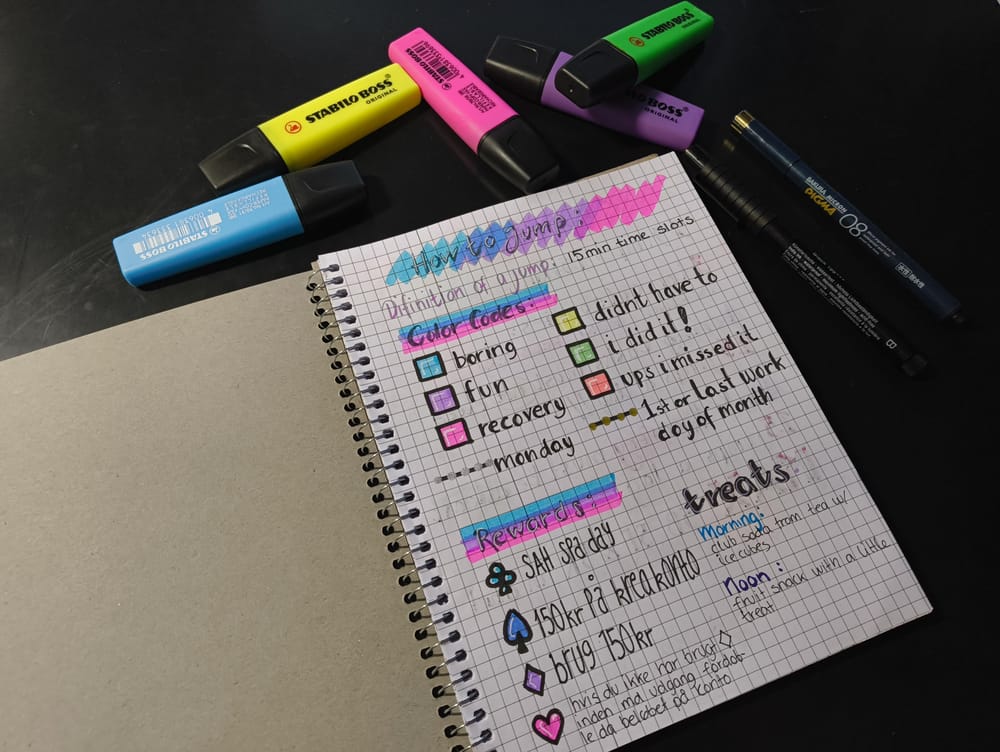 STABILO BOSS
ORIGINAL
STABILO BOSS
STABILO BOSS
ORIGINAL
BOSS
ORIGINAL
STABILO BOSS
SAKURA MICRON
PIGMA
08
8
How to jump:
Definition of a jump: 15 min time slots
Color Codes:
boring
fun
recovery
monday
didnt have to
i did it!
ups i missed it
1st or Last work
day of month
Rewards:
SAH spa day
150kr på kreakonto
brug 150kr
hvis du ikke har brugt ◇
inden md. udgang fordob-
le da beløbet på konto
treats
Morning:
club soda from tea w/
icecubes
Noon:
fruit snack with a little
treat